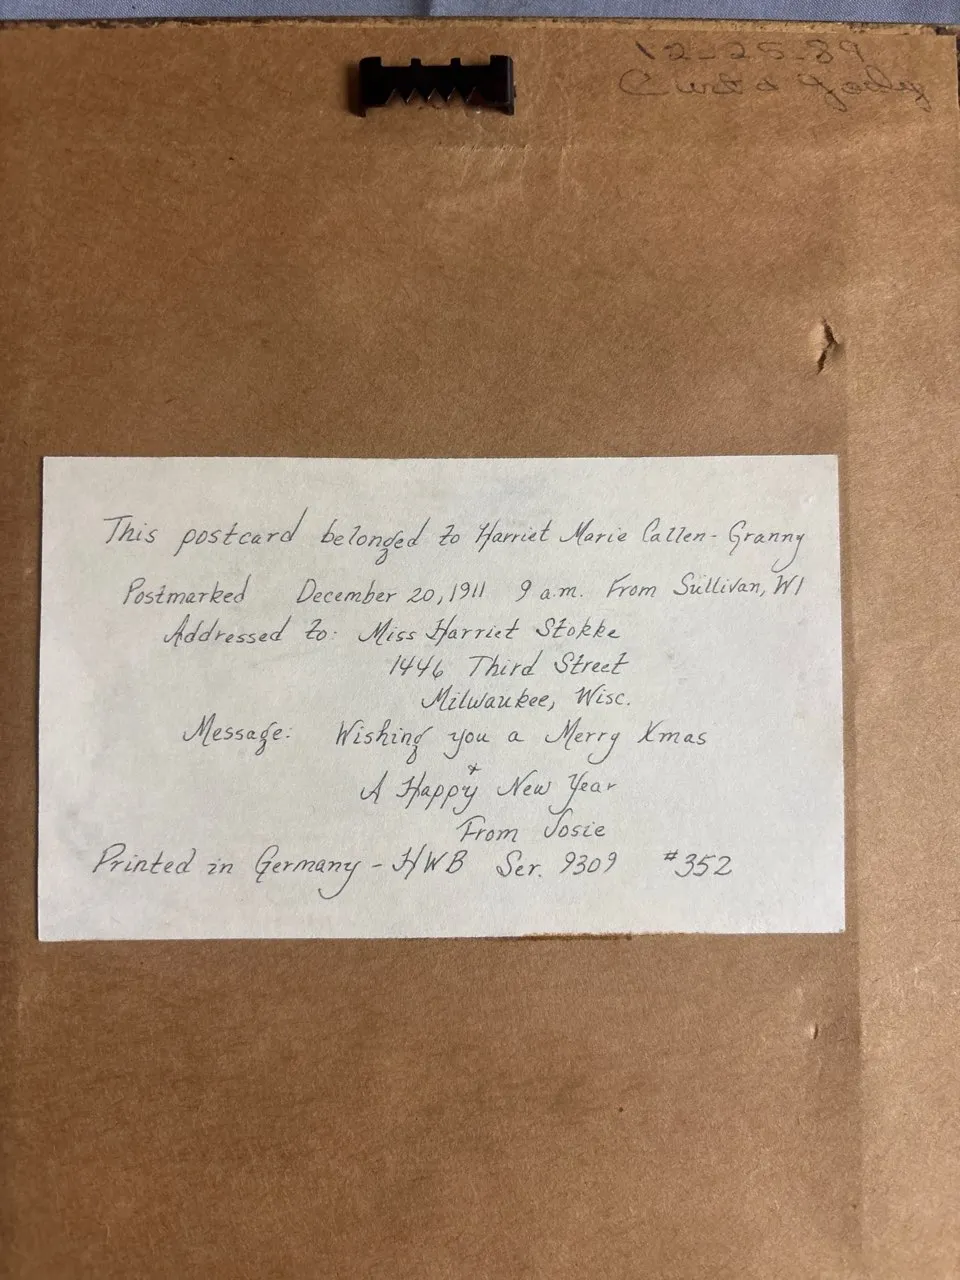 12-25-89
Curt & Jody
This postcard belonged to Harriet Marie Callen - Granny
Postmarked December 20, 1911 9 a.m. From Sullivan, WI
Addressed to: Miss Harriet Stokke
1446 Third Street
Milwaukee, Wisc.
Message: Wishing you a Merry Xmas
+
A Happy New Year
From Josie
Printed in Germany - HWB Ser. 9309 #352